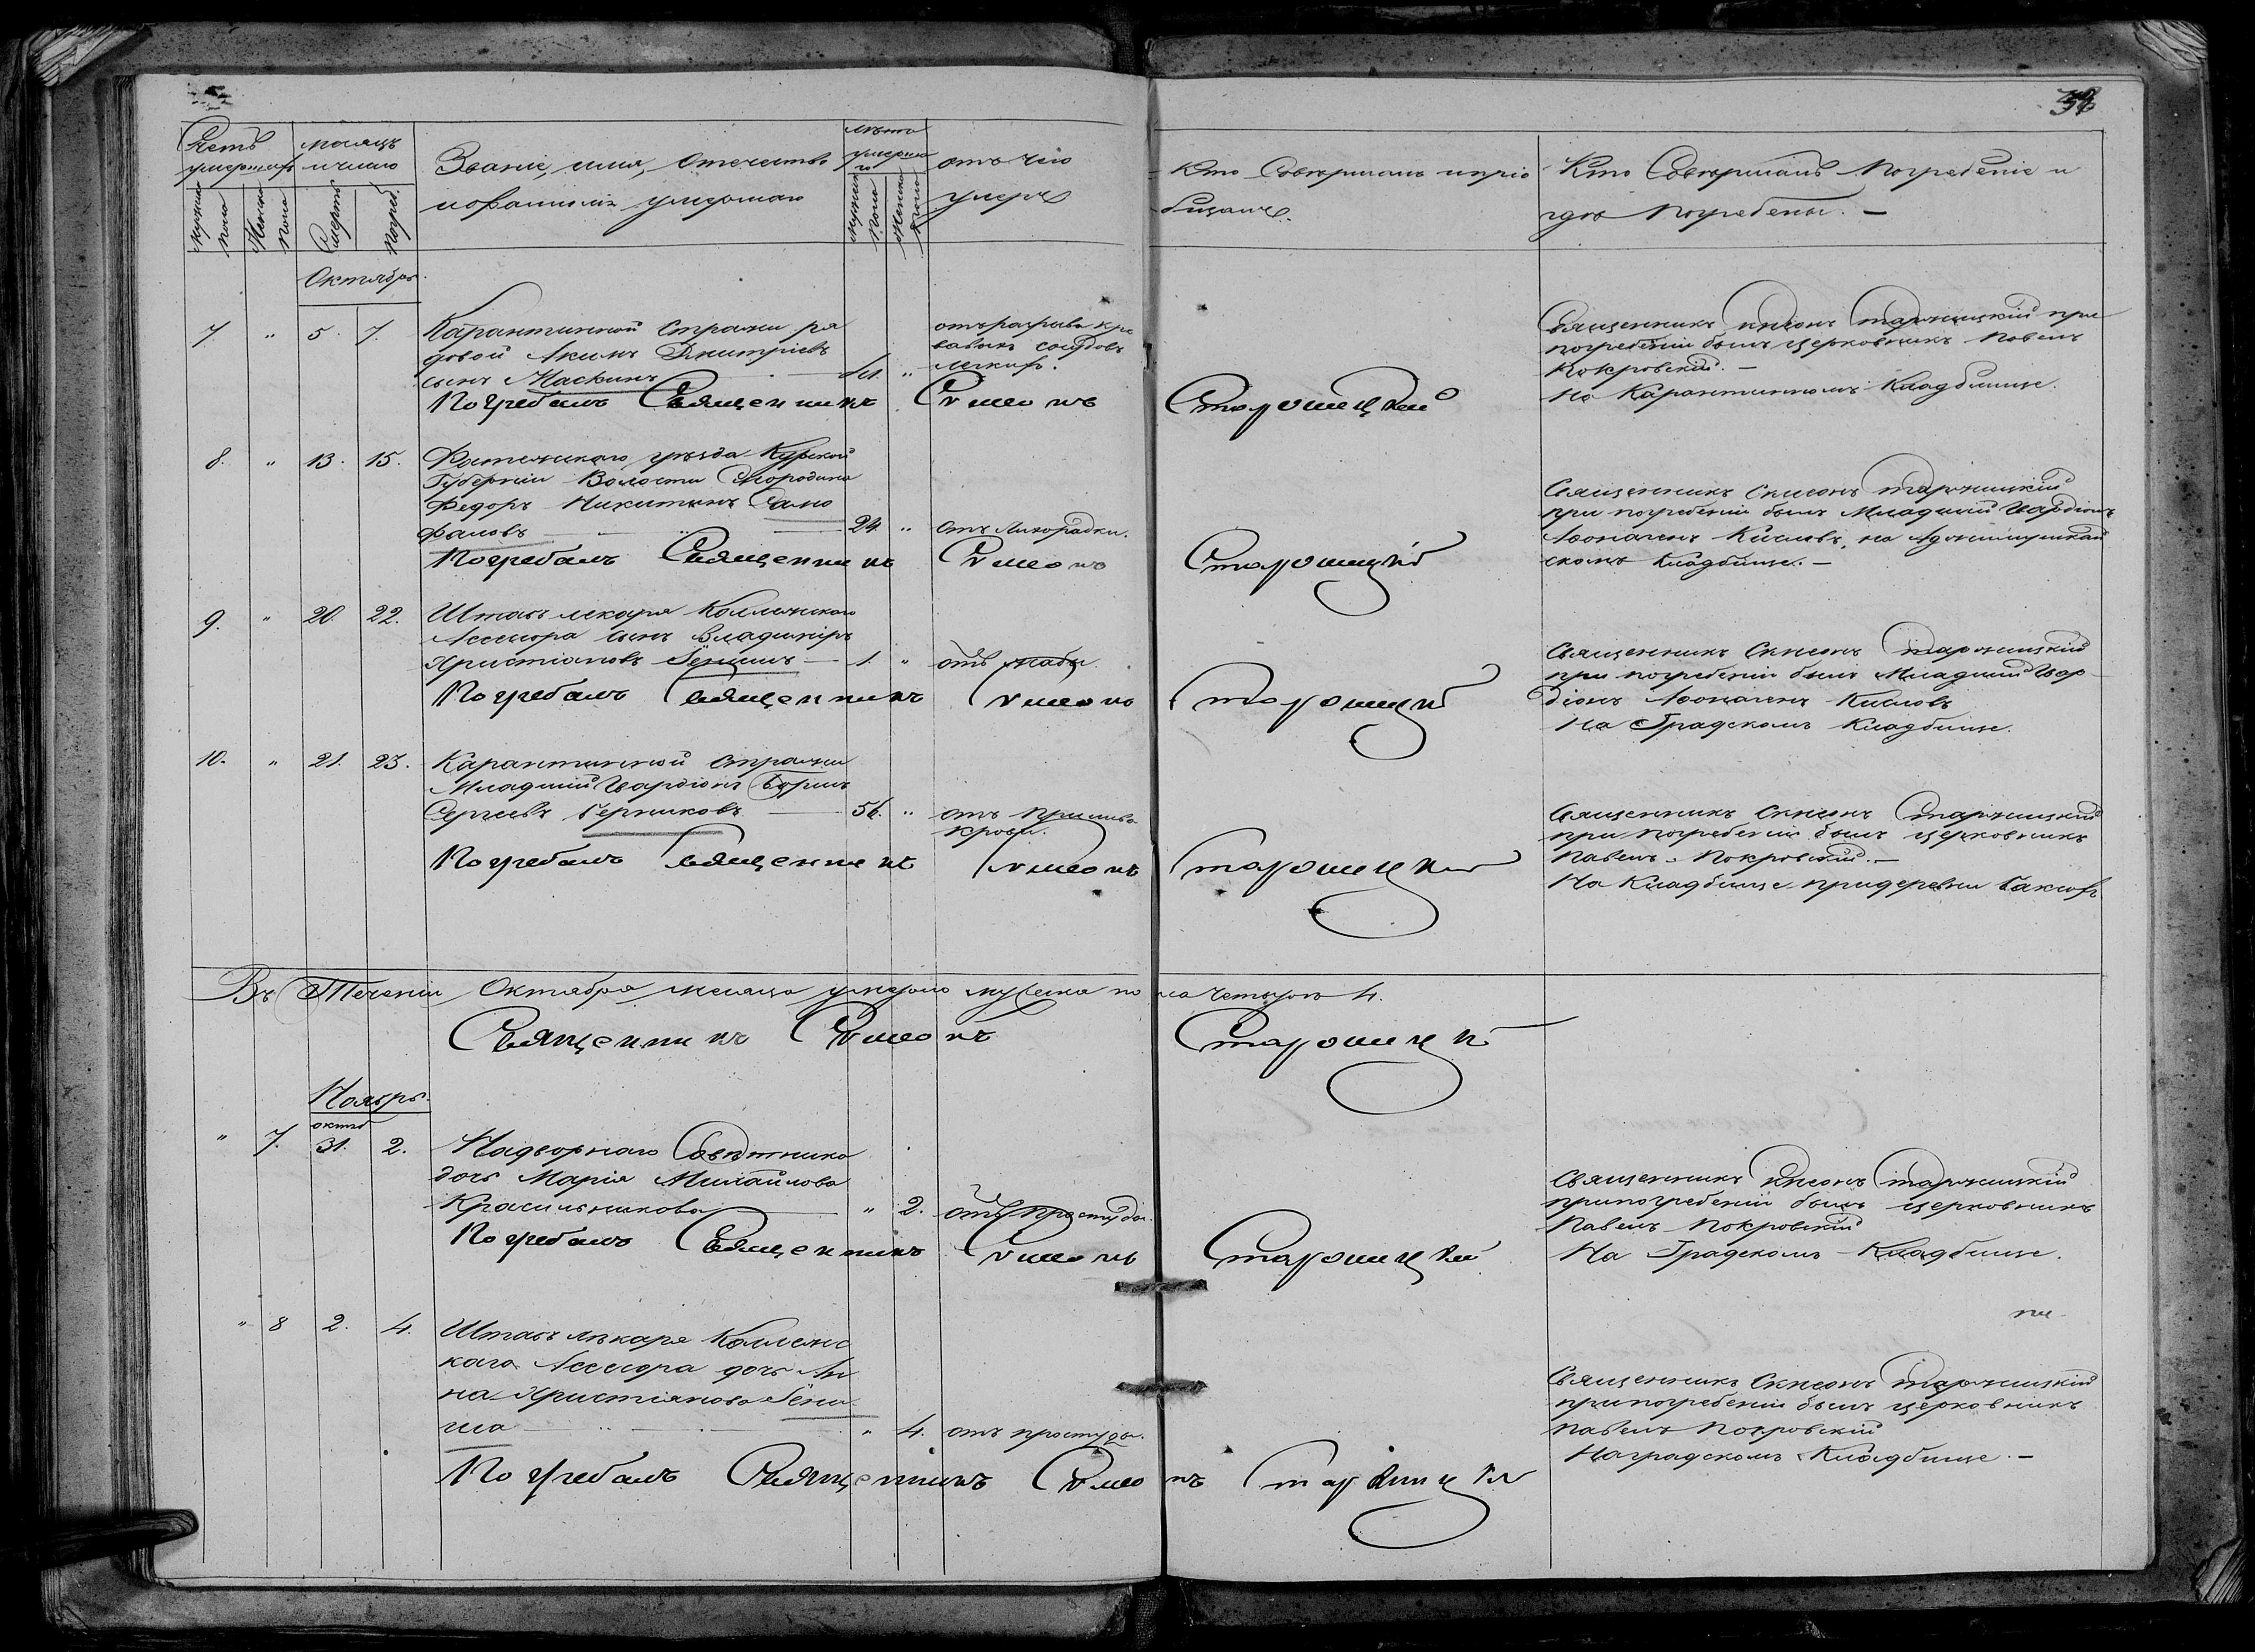 Счетъ умершихъ
месяцъ и число
Званіе, имя, отечество
и фамилія умершаго
лѣта умершаго
отъ чего
умеръ
Кто Совершалъ
Кто Совершалъ погребеніе и
гдѣ погребены. —
Мужска пола
Женска пола
Смерть
погреб.
Мужска пола
Женска пола
Октябрь.
7 " 5. 7.
Карантинной Стражи ря
довой Акимъ Дмитріевъ
сынъ Маскинъ "
отъ разрыва кро
вавыхъ сосудовъ
легкихъ.
Священникъ Симеонъ Старошицкій при
погребеніи былъ церковникъ Павелъ
Покровскій. —
На Карантинномъ Кладбище.
Погребалъ Священникъ Симеонъ Старошицкій
8. " 13. 15.
Фатежскаго уѣзда Курской
Губерніи Волости Смородина
Федоръ Никитинъ Сано
фаловъ 24 " отъ Лихорадки.
Священникъ Симеонъ Старошицкій
при погребеніи былъ Младшій Гвардіонъ
Афонасій Кисловъ, на
скомъ Кладбище. —
Погребалъ Священникъ Симеонъ Старошицкій
9. " 20. 22.
Штабъ лекаря Коллежскаго
Ассесора сынъ Владимиръ
Христіановъ 1. " отъ
Священникъ Симеонъ Старошицкій
при погребеніи былъ Младшій Гвар
діонъ Афонасій Кисловъ
На Градскомъ Кладбище.
Погребалъ Священникъ Симеонъ Старошицкій
10. " 21. 23.
Карантинной Стражи
Младшій Гвардіонъ
Сергіевъ Герниковъ 56. " отъ прилива
крови.
Священникъ Симеонъ Старошицкій
при погребеніи былъ церковникъ
Павелъ Покровскій. —
На Кладбище при деревни
Погребалъ Священникъ Симеонъ Старошицкій
Въ Теченіи Октября месяца умерло мужеска пола четыре 4.
Священникъ Симеонъ Старошицкій
Ноябрь.
" 7. октб 31. 2.
Надворнаго Совѣтника
дочь Марія Михайлова
Красильникова " 2. отъ простуды.
Священникъ Симеонъ Старошицкій
при погребеніи былъ церковникъ
Павелъ Покровскій
На Градскомъ Кладбище.
Погребалъ Священникъ Симеонъ Старошицкій
" 8 2. 4.
Штабъ лѣкаря Коллежс
каго Ассесора дочь Ан
на Христіанова
" 4. отъ простуды.
Священникъ Симеонъ Старошицкій
при погребеніи былъ церковникъ
Павелъ Покровскій
На градскомъ Кладбище. —
Погребалъ Священникъ Симеонъ Старошицкій